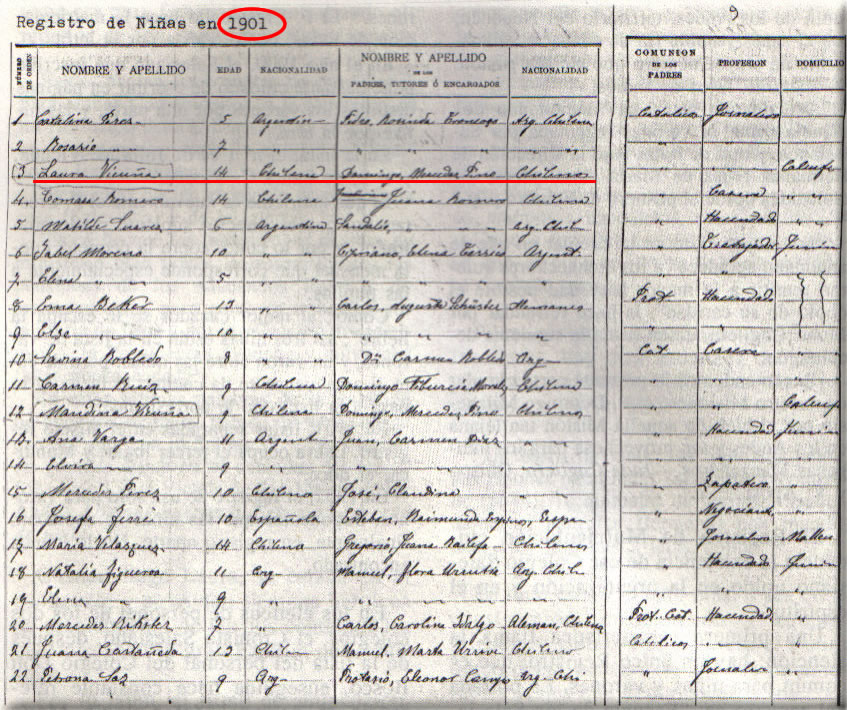 Registro de Niñas en 1901
9
NÚMERO DE ORDEN NOMBRE Y APELLIDO EDAD NACIONALIDAD NOMBRE Y APELLIDO DE LOS PADRES, TUTORES Ó ENCARGADOS NACIONALIDAD COMUNION DE LOS PADRES PROFESION DOMICILIO
1 Catalina Perez 5 Argentin Pedro, Rosinda Troncoso Arg. Chilena Catolicos Jornalero
2 Rosario " " 7 " " " " " "
3 Laura Vicuña 14 Chilena Domingo, Mercedes Pino Chilenos " " Calcufe
4. Tomasa Romero 14 Chilena Juana Romero Chilena " Casera "
5 Matilde Suarez 6 Argentina Sandalio, " " Arg. Chil " Hacendado "
6 Isabel Moreno 10 " " Cipriano, Elena Argent. " Trabajador Junin
7 Elena " " 5 " " " " "
8 Ema Beker 13 " " Carlos, Augusta Schüster Alemanes Prot Hacendado
9 Else " 10 " " " " " " "
10 Savina Robledo 8 " " Dña Carmen Robledo Arg- Cat Casera "
11 Carmen Ruiz 9 Chilena Domingo Tiburcia, Morales Chilena " "
12 Mandina Vicuña 9 Chilena Domingo, Mercedes Pino Chilenos " " Calcufe
13. Ana Varga 11 Argent Juan, Carmen Diaz " " Hacendad Junin
14 Elvira " 9 " " " " "
15 Mercedes Perez 10 Chilena José, Claudina " " Zapatero "
16 Josefa Ferré 10 Española Esteban, Raimunda Espa- " Negociant. "
17 Maria Velasquez 14 Chilena Gregorio, Juana Chilenos " Jornalero
18 Natalia Figueroa 11 Arg- Manuel, Flora Urrutia Arg. Chil " Hacendado Junin
19 Elena " 9 " " " " "
20 Mercedes 7 " Carlos, Carolina Idalgo Aleman, Chilena Prot. Cat. Hacendad. "
21 Juana Castañeda 13 Chilen Manuel, Marta Chileno Catolicos " "
22 Petrona Saz 9 Arg- Protasio, Eleonor Campo Arg- Chi " Jornalero "